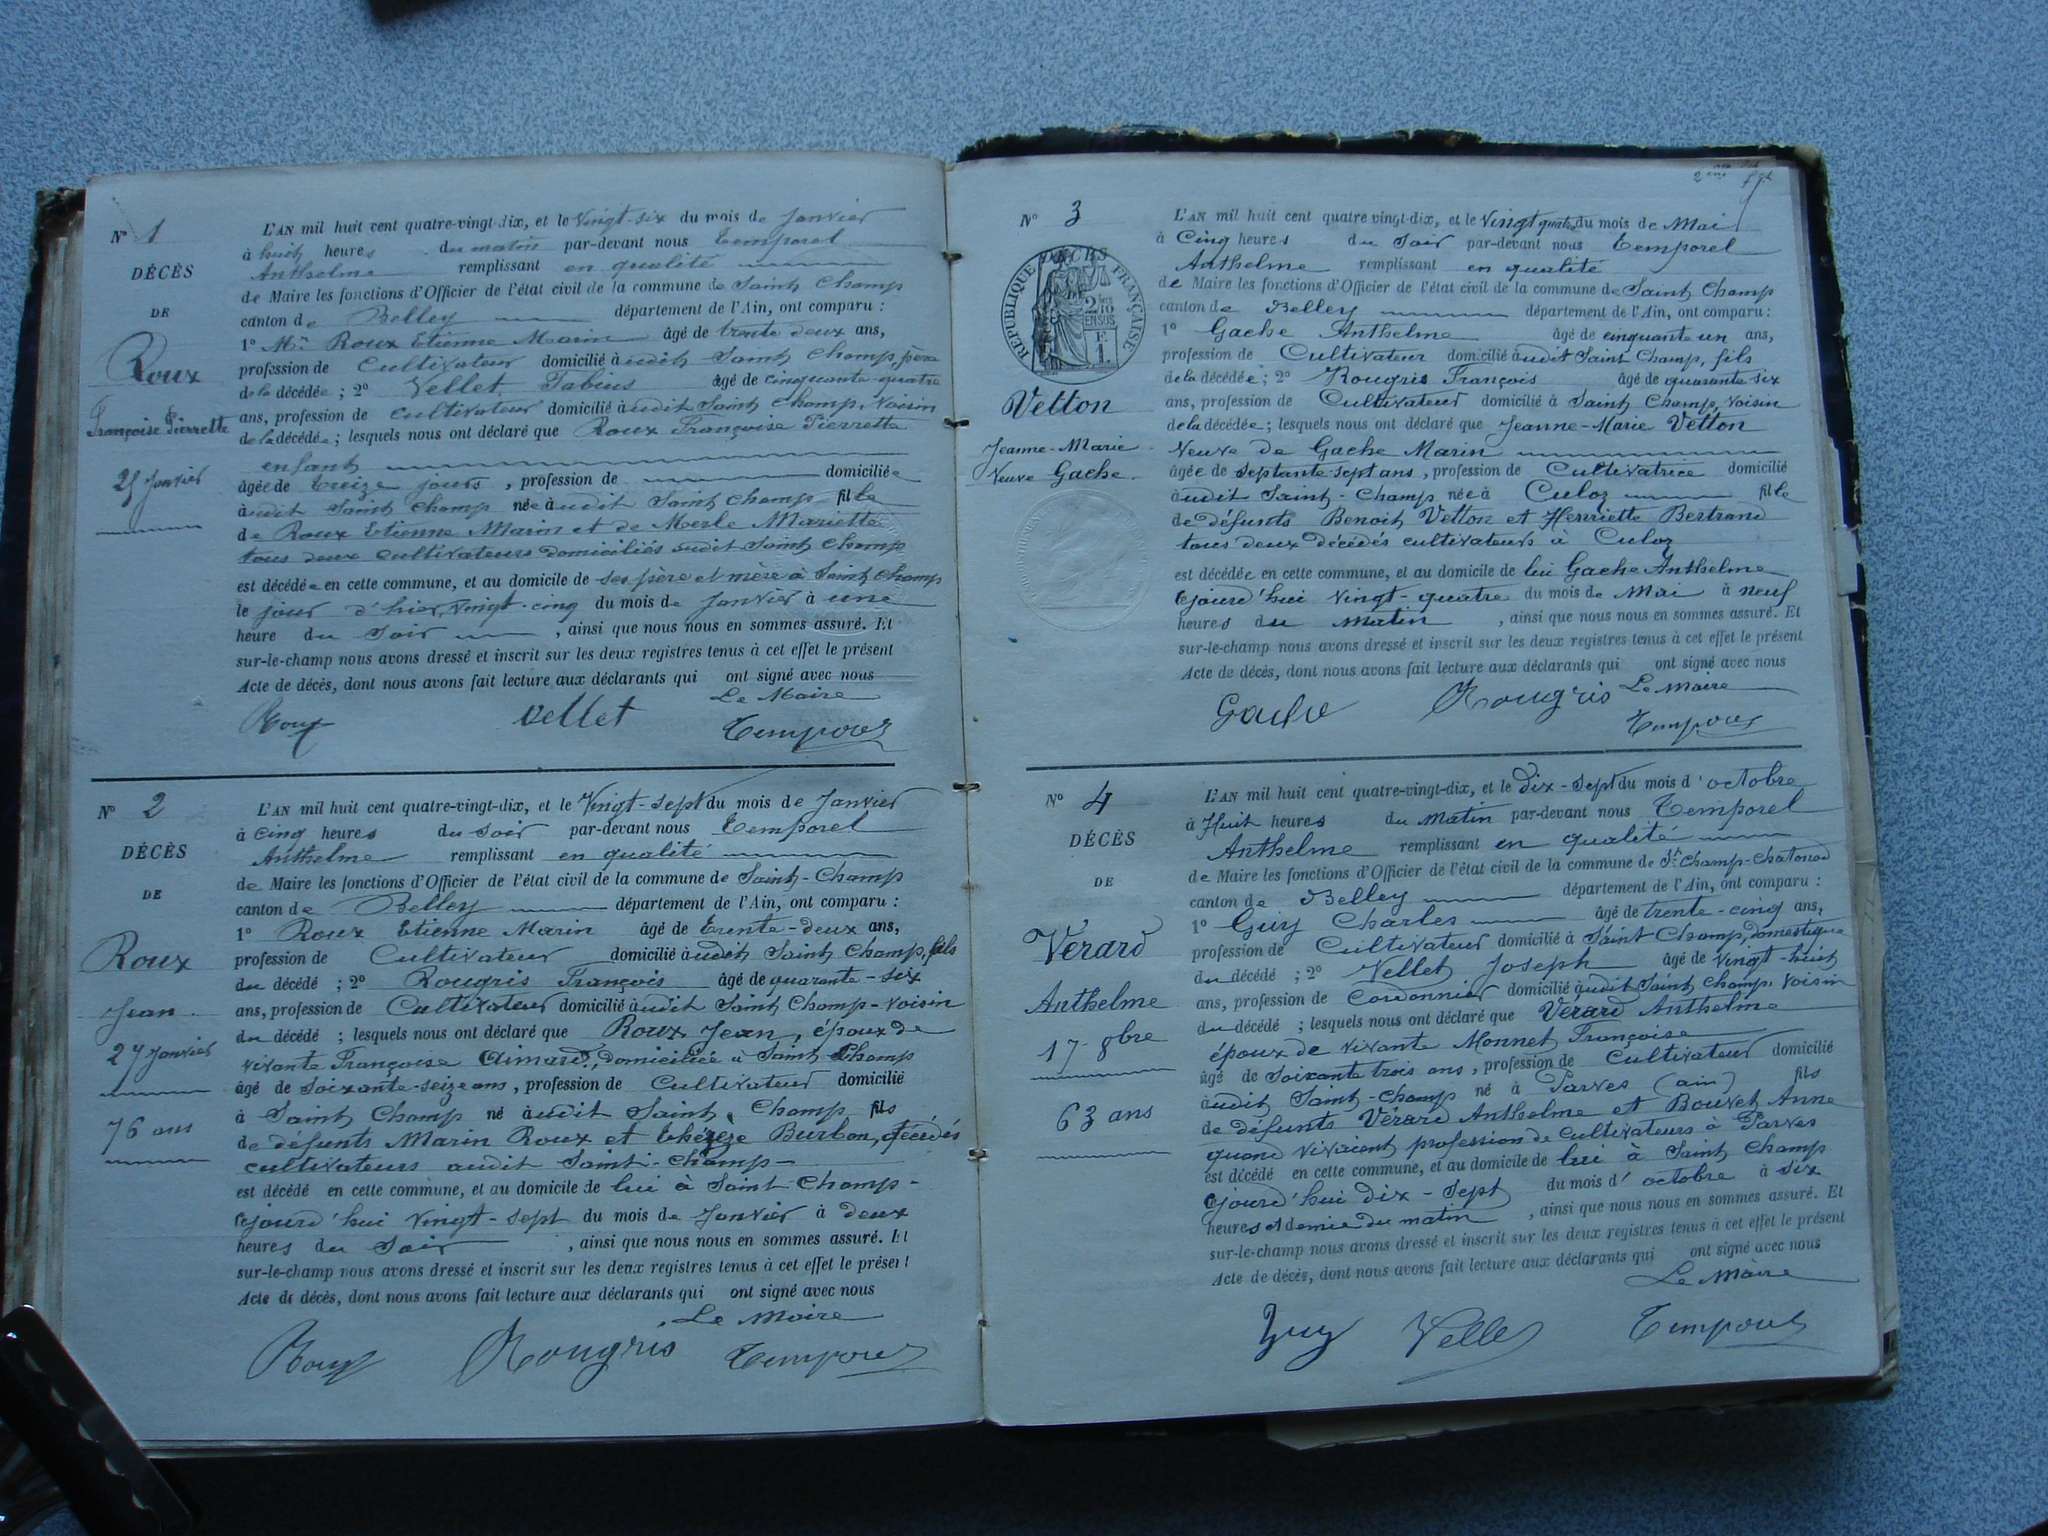 N° 1
DÉCÈS
DE
Roux
Françoise Pierrette
25 Janvier
L'AN mil huit cent quatre-vingt-dix, et le Vingt-six du mois de Janvier
à huit heures du matin par-devant nous Temporel
Anthelme remplissant en qualité
de Maire les fonctions d'Officier de l'état civil de la commune de Saint Champ
canton de Belley département de l'Ain, ont comparu :
1° Mr Roux Etienne Marin âgé de trente deux ans,
profession de Cultivateur domicilié à udit Saint Champ, père
de la décédée ; 2° Vellet Fabius âgé de cinquante-quatre
ans, profession de cultivateur domicilié à udit Saint Champ, Voisin
de la décédée ; lesquels nous ont déclaré que Roux Françoise Pierrette
enfant
âgée de treize jours, profession de domiciliée
à udit Saint Champ née à udit Saint Champ fille
de Roux Etienne Marin et de Merle Mariette
tous deux cultivateurs domiciliés audit Saint Champ
est décédée en cette commune, et au domicile de ses père et mère à Saint Champ
le jour d'hier, vingt-cinq du mois de Janvier à une
heure du Soir, ainsi que nous nous en sommes assuré. Et
sur-le-champ nous avons dressé et inscrit sur les deux registres tenus à cet effet le présent
Acte de décès, dont nous avons fait lecture aux déclarants qui ont signé avec nous
Le Maire
Roux Vellet Temporel
N° 2
DÉCÈS
DE
Roux
Jean
27 Janvier
76 ans
L'AN mil huit cent quatre-vingt-dix, et le Vingt-sept du mois de Janvier
à cinq heures du soir par-devant nous Temporel
Anthelme remplissant en qualité
de Maire les fonctions d'Officier de l'état civil de la commune de Saint-Champ
canton de Belley département de l'Ain, ont comparu :
1° Roux Etienne Marin âgé de Trente-deux ans,
profession de Cultivateur domicilié à udit Saint Champ, fils
du décédé ; 2° Rougris François âgé de quarante-six
ans, profession de Cultivateur domicilié à udit Saint Champ-voisin
du décédé ; lesquels nous ont déclaré que Roux Jean, époux de
vivante Françoise Aimard, domiciliée à Saint Champ
âgé de Soixante-seize ans, profession de Cultivateur domicilié
à Saint Champ né à udit Saint Champ fils
de défunts Marin Roux et Thérèze Burbon, décédés
cultivateurs audit Saint-Champ-
est décédé en cette commune, et au domicile de lui à Saint Champ-
cejourd'hui vingt-sept du mois de Janvier à deux
heures du Soir, ainsi que nous nous en sommes assuré. Et
sur-le-champ nous avons dressé et inscrit sur les deux registres tenus à cet effet le présent
Acte de décès, dont nous avons fait lecture aux déclarants qui ont signé avec nous
Le Maire
Roux Rougris Temporel
2ème
N° 3
RÉPUBLIQUE FRANÇAISE
DÉCÈS
2/10 EN SUS
F 1.
Vetton
Jeanne-Marie
Veuve Gache.
L'AN mil huit cent quatre vingt-dix, et le Vingt quatre du mois de Mai
à Cinq heures du Soir par-devant nous Temporel
Anthelme remplissant en qualité
de Maire les fonctions d'Officier de l'état civil de la commune de Saint Champ
canton de Belley département de l'Ain, ont comparu :
1° Gache Anthelme âgé de cinquante un ans,
profession de Cultivateur domicilié à udit Saint Champ, fils
de la décédée ; 2° Rougris François âgé de quarante-six
ans, profession de Cultivateur domicilié à Saint Champ, Voisin
de la décédée ; lesquels nous ont déclaré que Jeanne-Marie Vetton
Veuve de Gache Marin
âgée de septante-sept ans, profession de Cultivatrice domicilié
à udit Saint-Champ née à Culoz fille
de défunts Benoit Vetton et Henriette Bertrand
tous deux décédés cultivateurs à Culoz
est décédée en cette commune, et au domicile de lui Gache Anthelme
Cejourd'hui vingt-quatre du mois de Mai à neuf
heures du matin, ainsi que nous nous en sommes assuré. Et
sur-le-champ nous avons dressé et inscrit sur les deux registres tenus à cet effet le présent
Acte de décès, dont nous avons fait lecture aux déclarants qui ont signé avec nous
Gache Rougris Le Maire
Temporel
N° 4
DÉCÈS
DE
Vérard
Anthelme
17 8bre
63 ans
L'AN mil huit cent quatre-vingt-dix, et le dix-sept du mois d'octobre
à Huit heures du Matin par-devant nous Temporel
Anthelme remplissant en qualité
de Maire les fonctions d'Officier de l'état civil de la commune de St Champ-Chatonod
canton de Belley département de l'Ain, ont comparu :
1° Guy Charles âgé de trente-cinq ans,
profession de Cultivateur domicilié à Saint-Champ, domestique
du décédé ; 2° Vellet Joseph âgé de vingt-huit
ans, profession de Cordonnier domicilié à udit Saint Champ. Voisin
du décédé ; lesquels nous ont déclaré que Vérard Anthelme
époux de vivante Monnet Françoise
âgé de Soixante trois ans, profession de Cultivateur domicilié
à udit Saint-Champ né à Parves (ain) fils
de défunts Vérard Anthelme et Bouvet Anne
quand vivaient profession de Cultivateurs à Parves
est décédé en cette commune, et au domicile de lui à Saint Champ
Cejourd'hui dix-sept du mois d'octobre à six
heures et demie du matin, ainsi que nous nous en sommes assuré. Et
sur-le-champ nous avons dressé et inscrit sur les deux registres tenus à cet effet le présent
Acte de décès, dont nous avons fait lecture aux déclarants qui ont signé avec nous
Le Maire
Guy Vellet Temporel